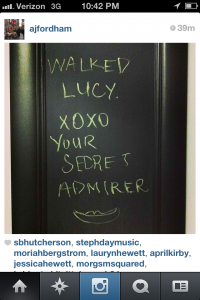 Verizon 3G 10:42 PM
ajfordham
39m
WALKED
LUCY.
XOXO
YOUR
SECRET
ADMIRER
sbhutcherson, stephdaymusic,
moriahbergstrom, laurynhewett, aprilkirby,
jessicahewett, morgsmsquared,